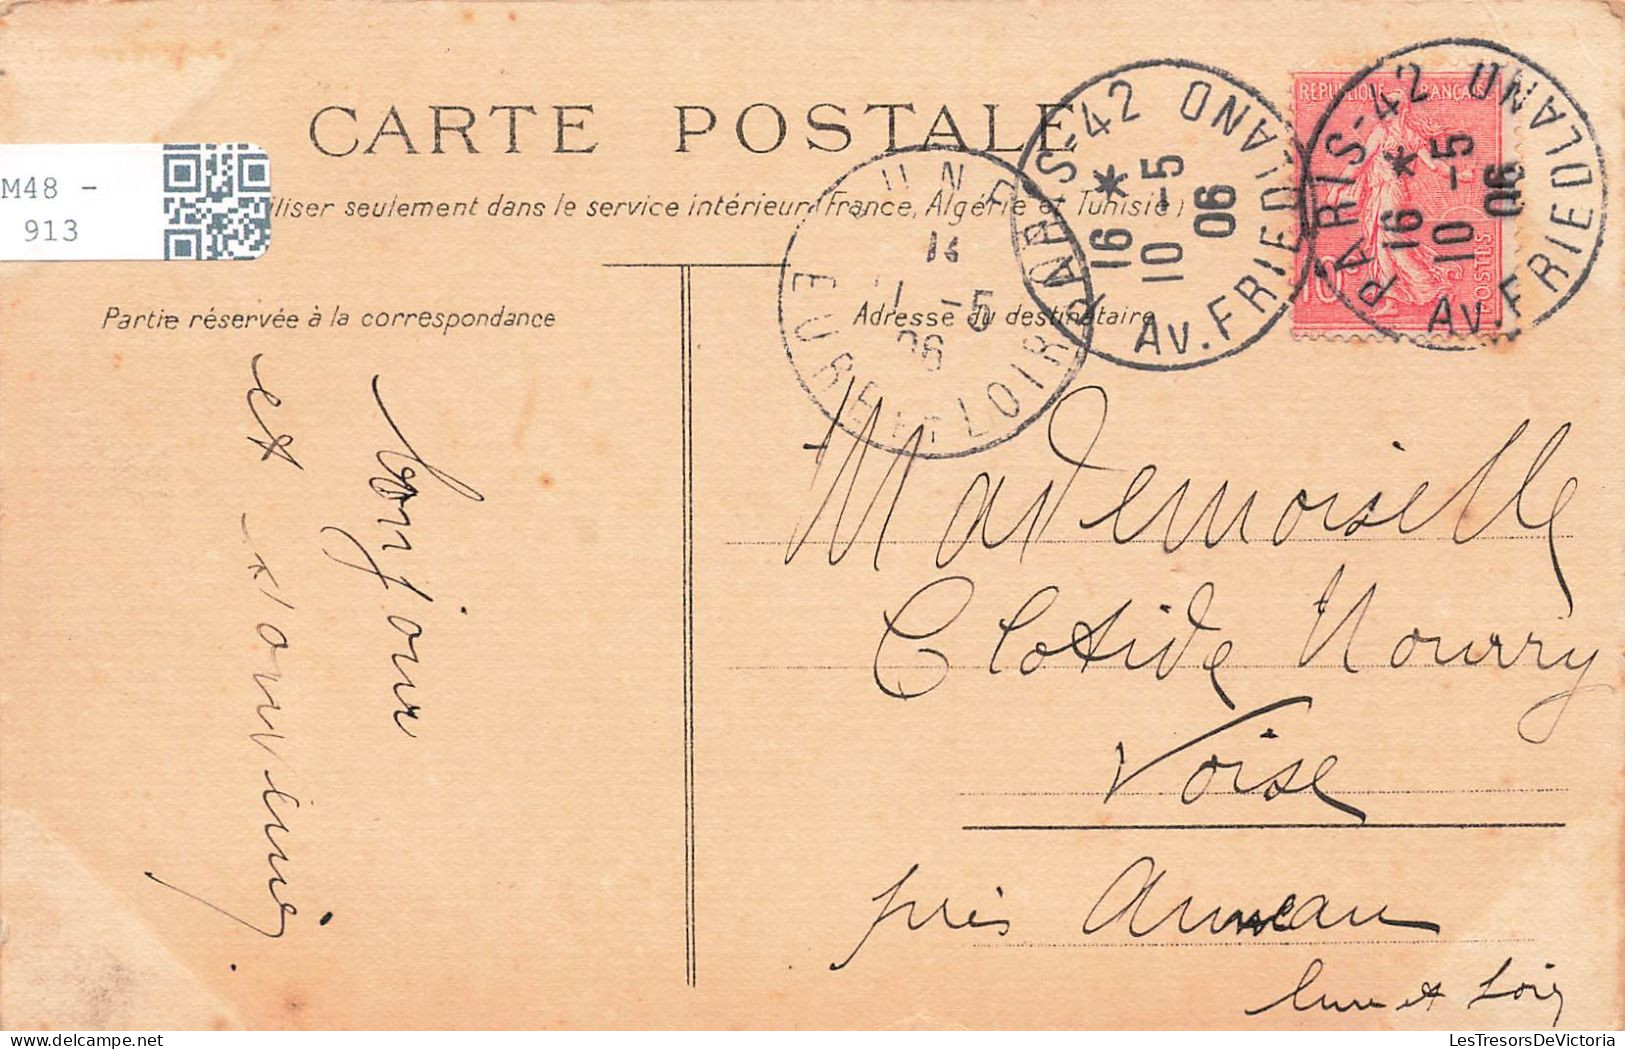 CARTE POSTALE
M48 -
913
iliser seulement dans le service intérieur (France, Algérie et Tunisie)
Partie réservée à la correspondance
Adresse du destinataire
PARIS-42
16 *
10 -5
06
AV. FRIEDLAND
REPUBLIQUE FRANÇAISE
10
POSTES
PARIS-42
16 *
10 -5
06
AV. FRIEDLAND
-5
06
EURE ET LOIR
bonjour
et souvenir
Mademoiselle
Clotide Nourry
Voise
près Auneau
Eure et Loir
LesTresorsDeVictoria